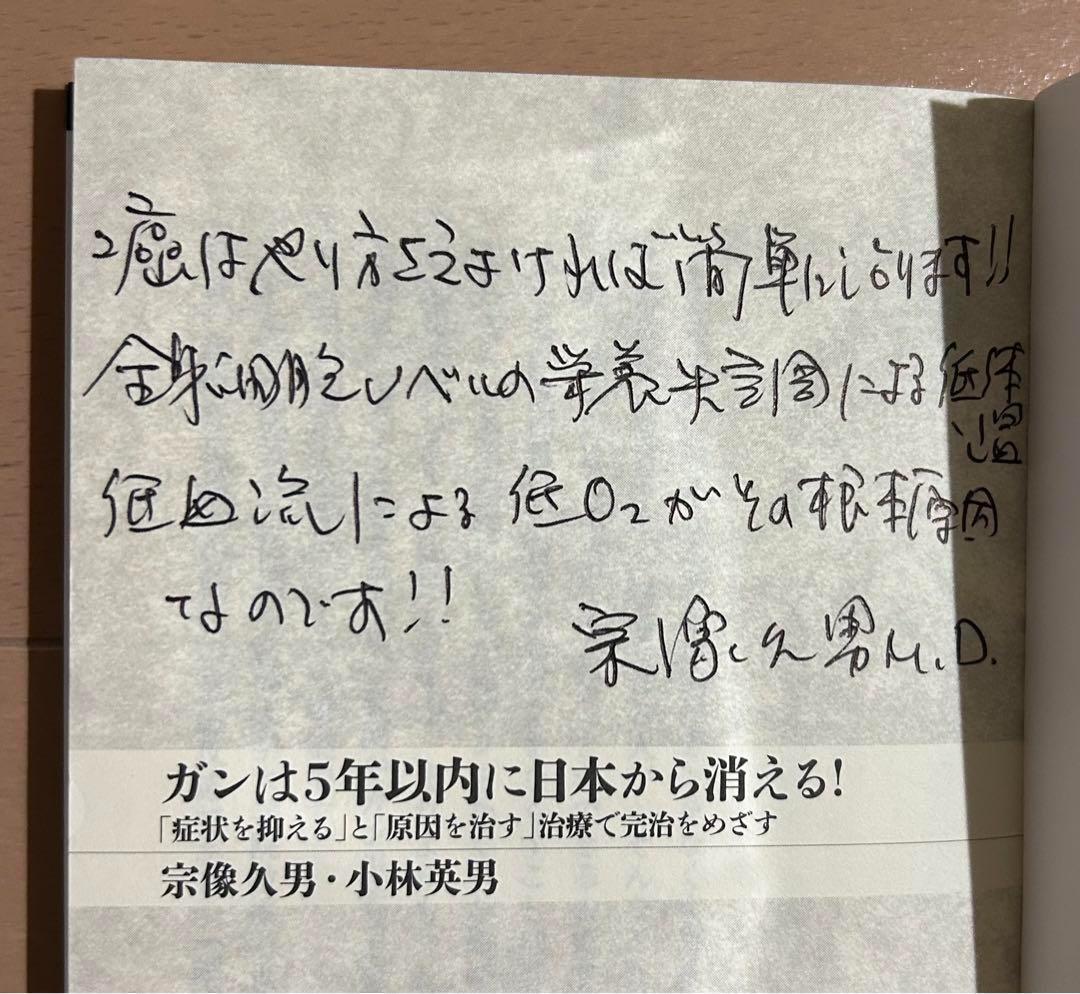 癌はやり方さえよければ簡単に治ります!!
全身細胞レベルの栄養失調による低体温
低血流による低O₂がその根本原因
なのです!!
宗像久男M.D.
ガンは5年以内に日本から消える!
「症状を抑える」と「原因を治す」治療で完治をめざす
宗像久男・小林英男